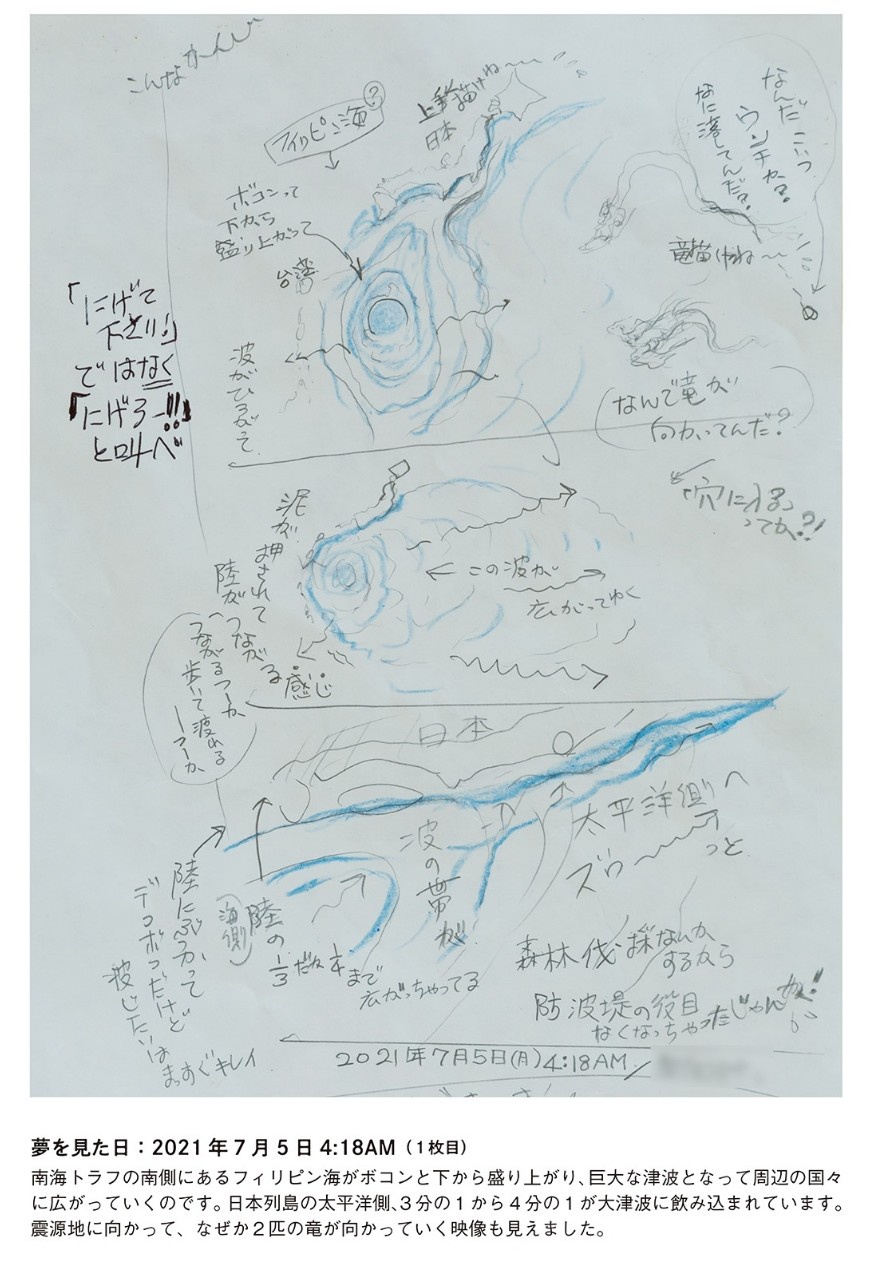 こんなかんじ
フィリピン海?
上手描けね〜
日本
なんだこいつ
ウンチか?
なに落してんだ?
ボコンって
下から
盛り上がって
台湾
竜描けね〜
「にげて
下さい!」
ではなく
「にげろー!!」
と叫べ
波がひろがって
なんで竜が
向かってんだ?
「穴に入る」
ってか?!
泥が押されて
陸がつながる
感じ
つながるつーか
歩いて渡れる
ーつーか
この波が
広がってゆく
日本
太平洋側へ
ズゥ〜っと
波の帯が
陸にぶつかって
デコボコだけど
波じたいは
まっすぐキレイ
(海側)
陸の1/3だね 1/4まで
広がっちゃってる
森林伐採なんか
するから
防波堤の役目
なくなっちゃったじゃんか!
2021年7月5日(月)4:18AM
夢を見た日:2021年7月5日4:18AM(1枚目)
南海トラフの南側にあるフィリピン海がボコンと下から盛り上がり、巨大な津波となって周辺の国々
に広がっていくのです。日本列島の太平洋側、3分の1から4分の1が大津波に飲み込まれています。
震源地に向かって、なぜか2匹の竜が向かっていく映像も見えました。